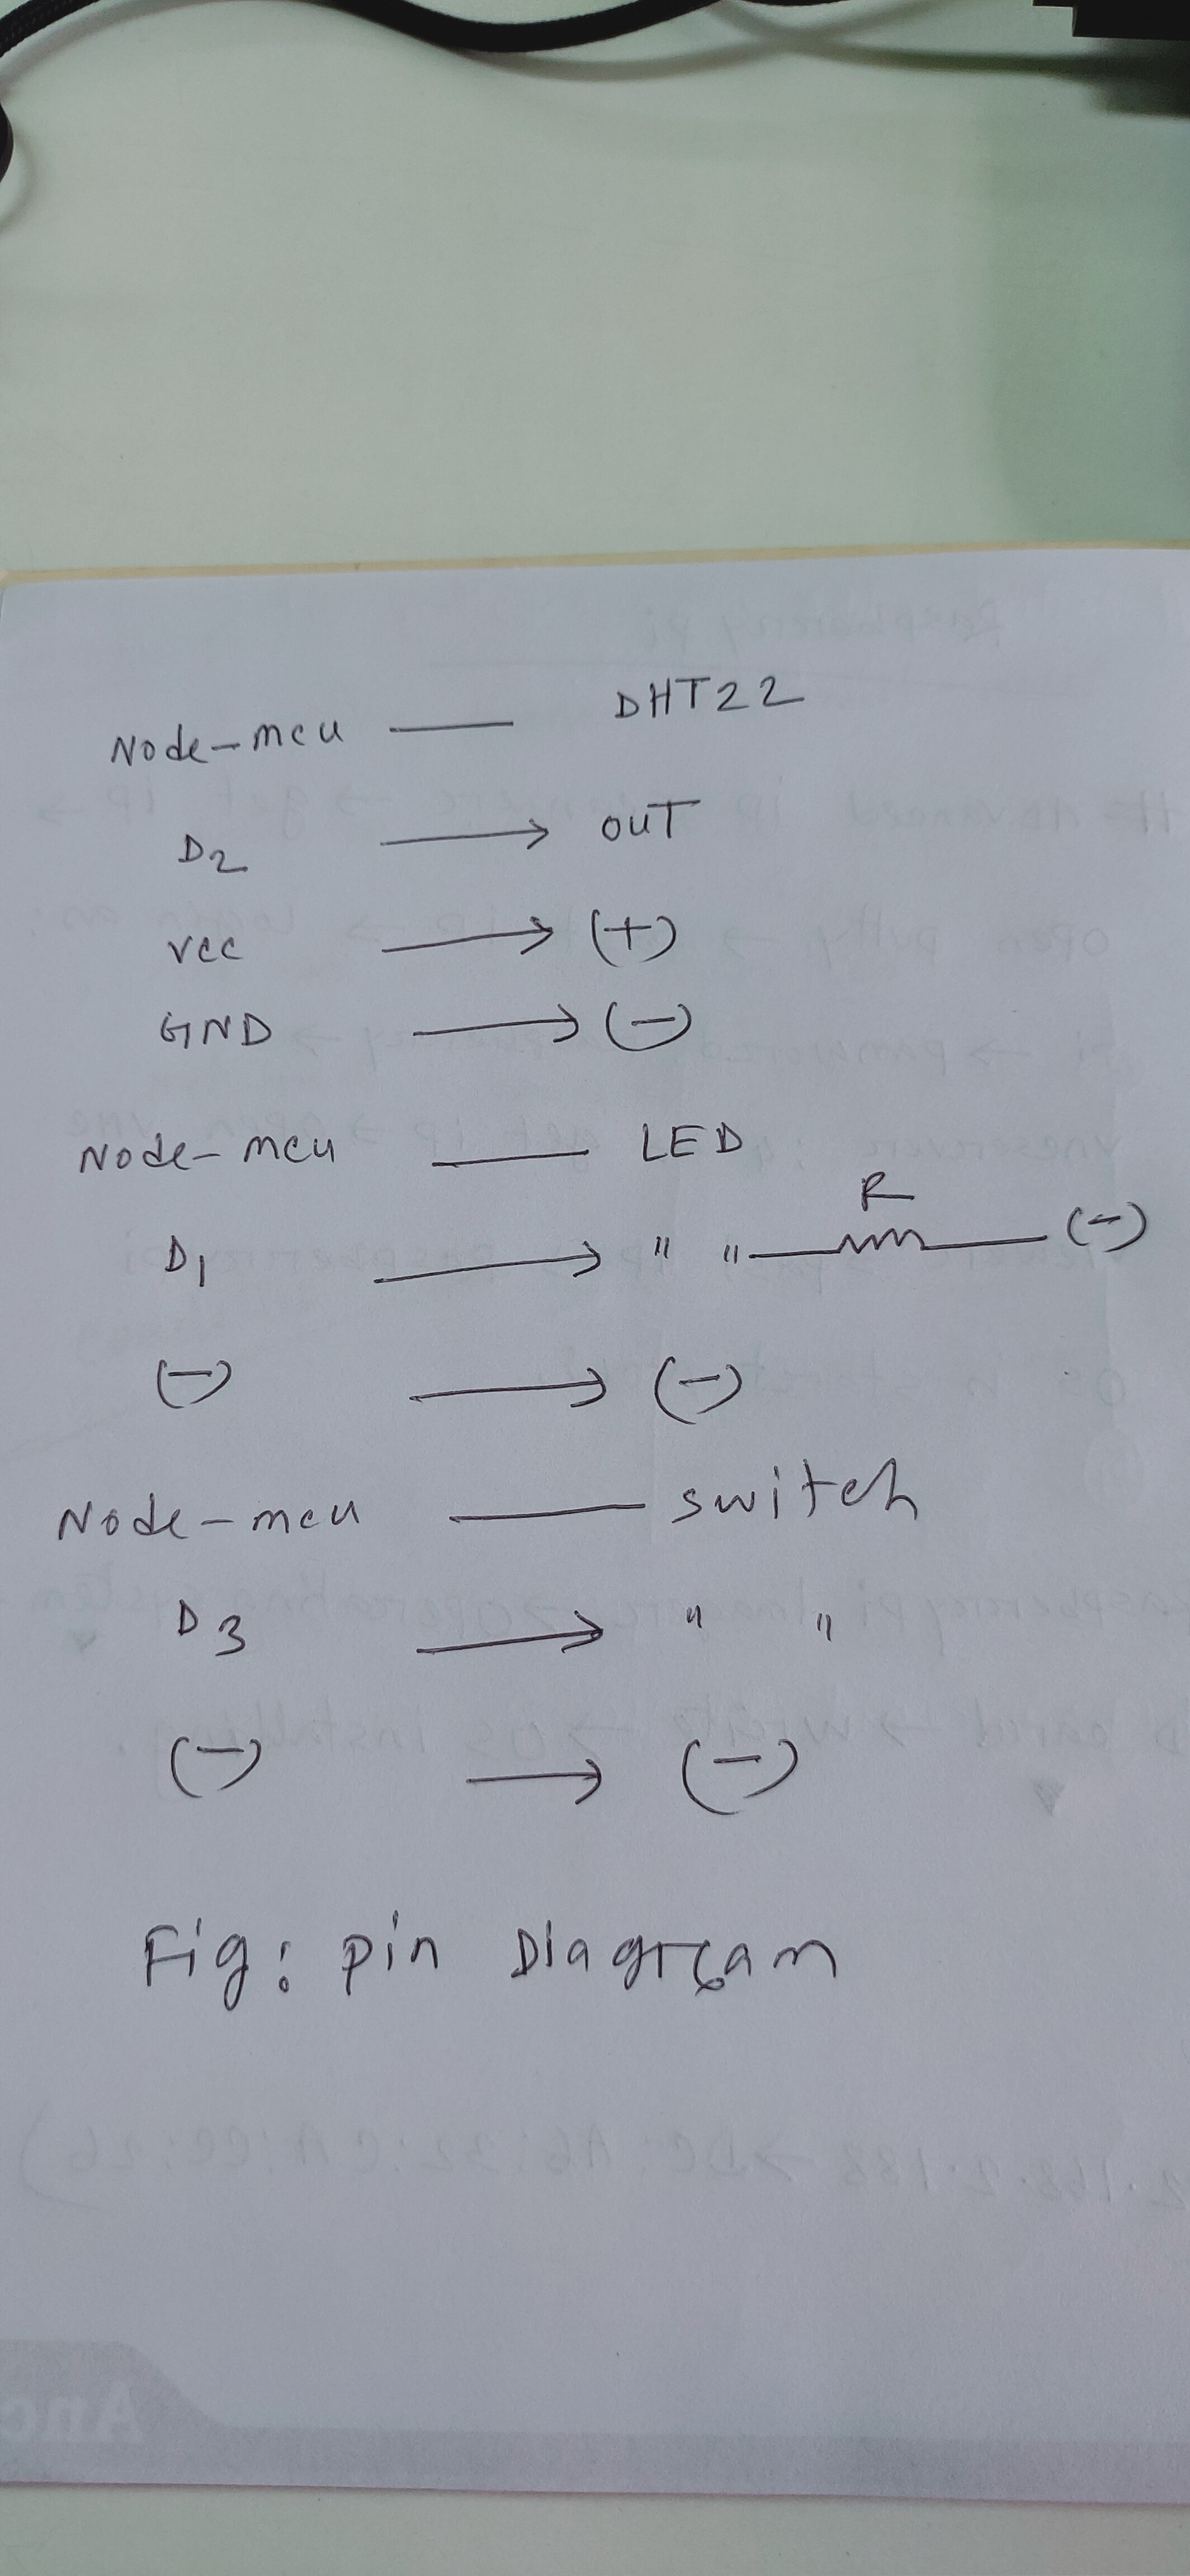 Node-mcu — DHT22
D2 → OUT
vcc → (+)
GND → (-)
Node-mcu — LED
R
D1 → " " — (-)
(-) → (-)
Node-mcu — switch
D3 → " "
(-) → (-)
Fig: pin Diagram